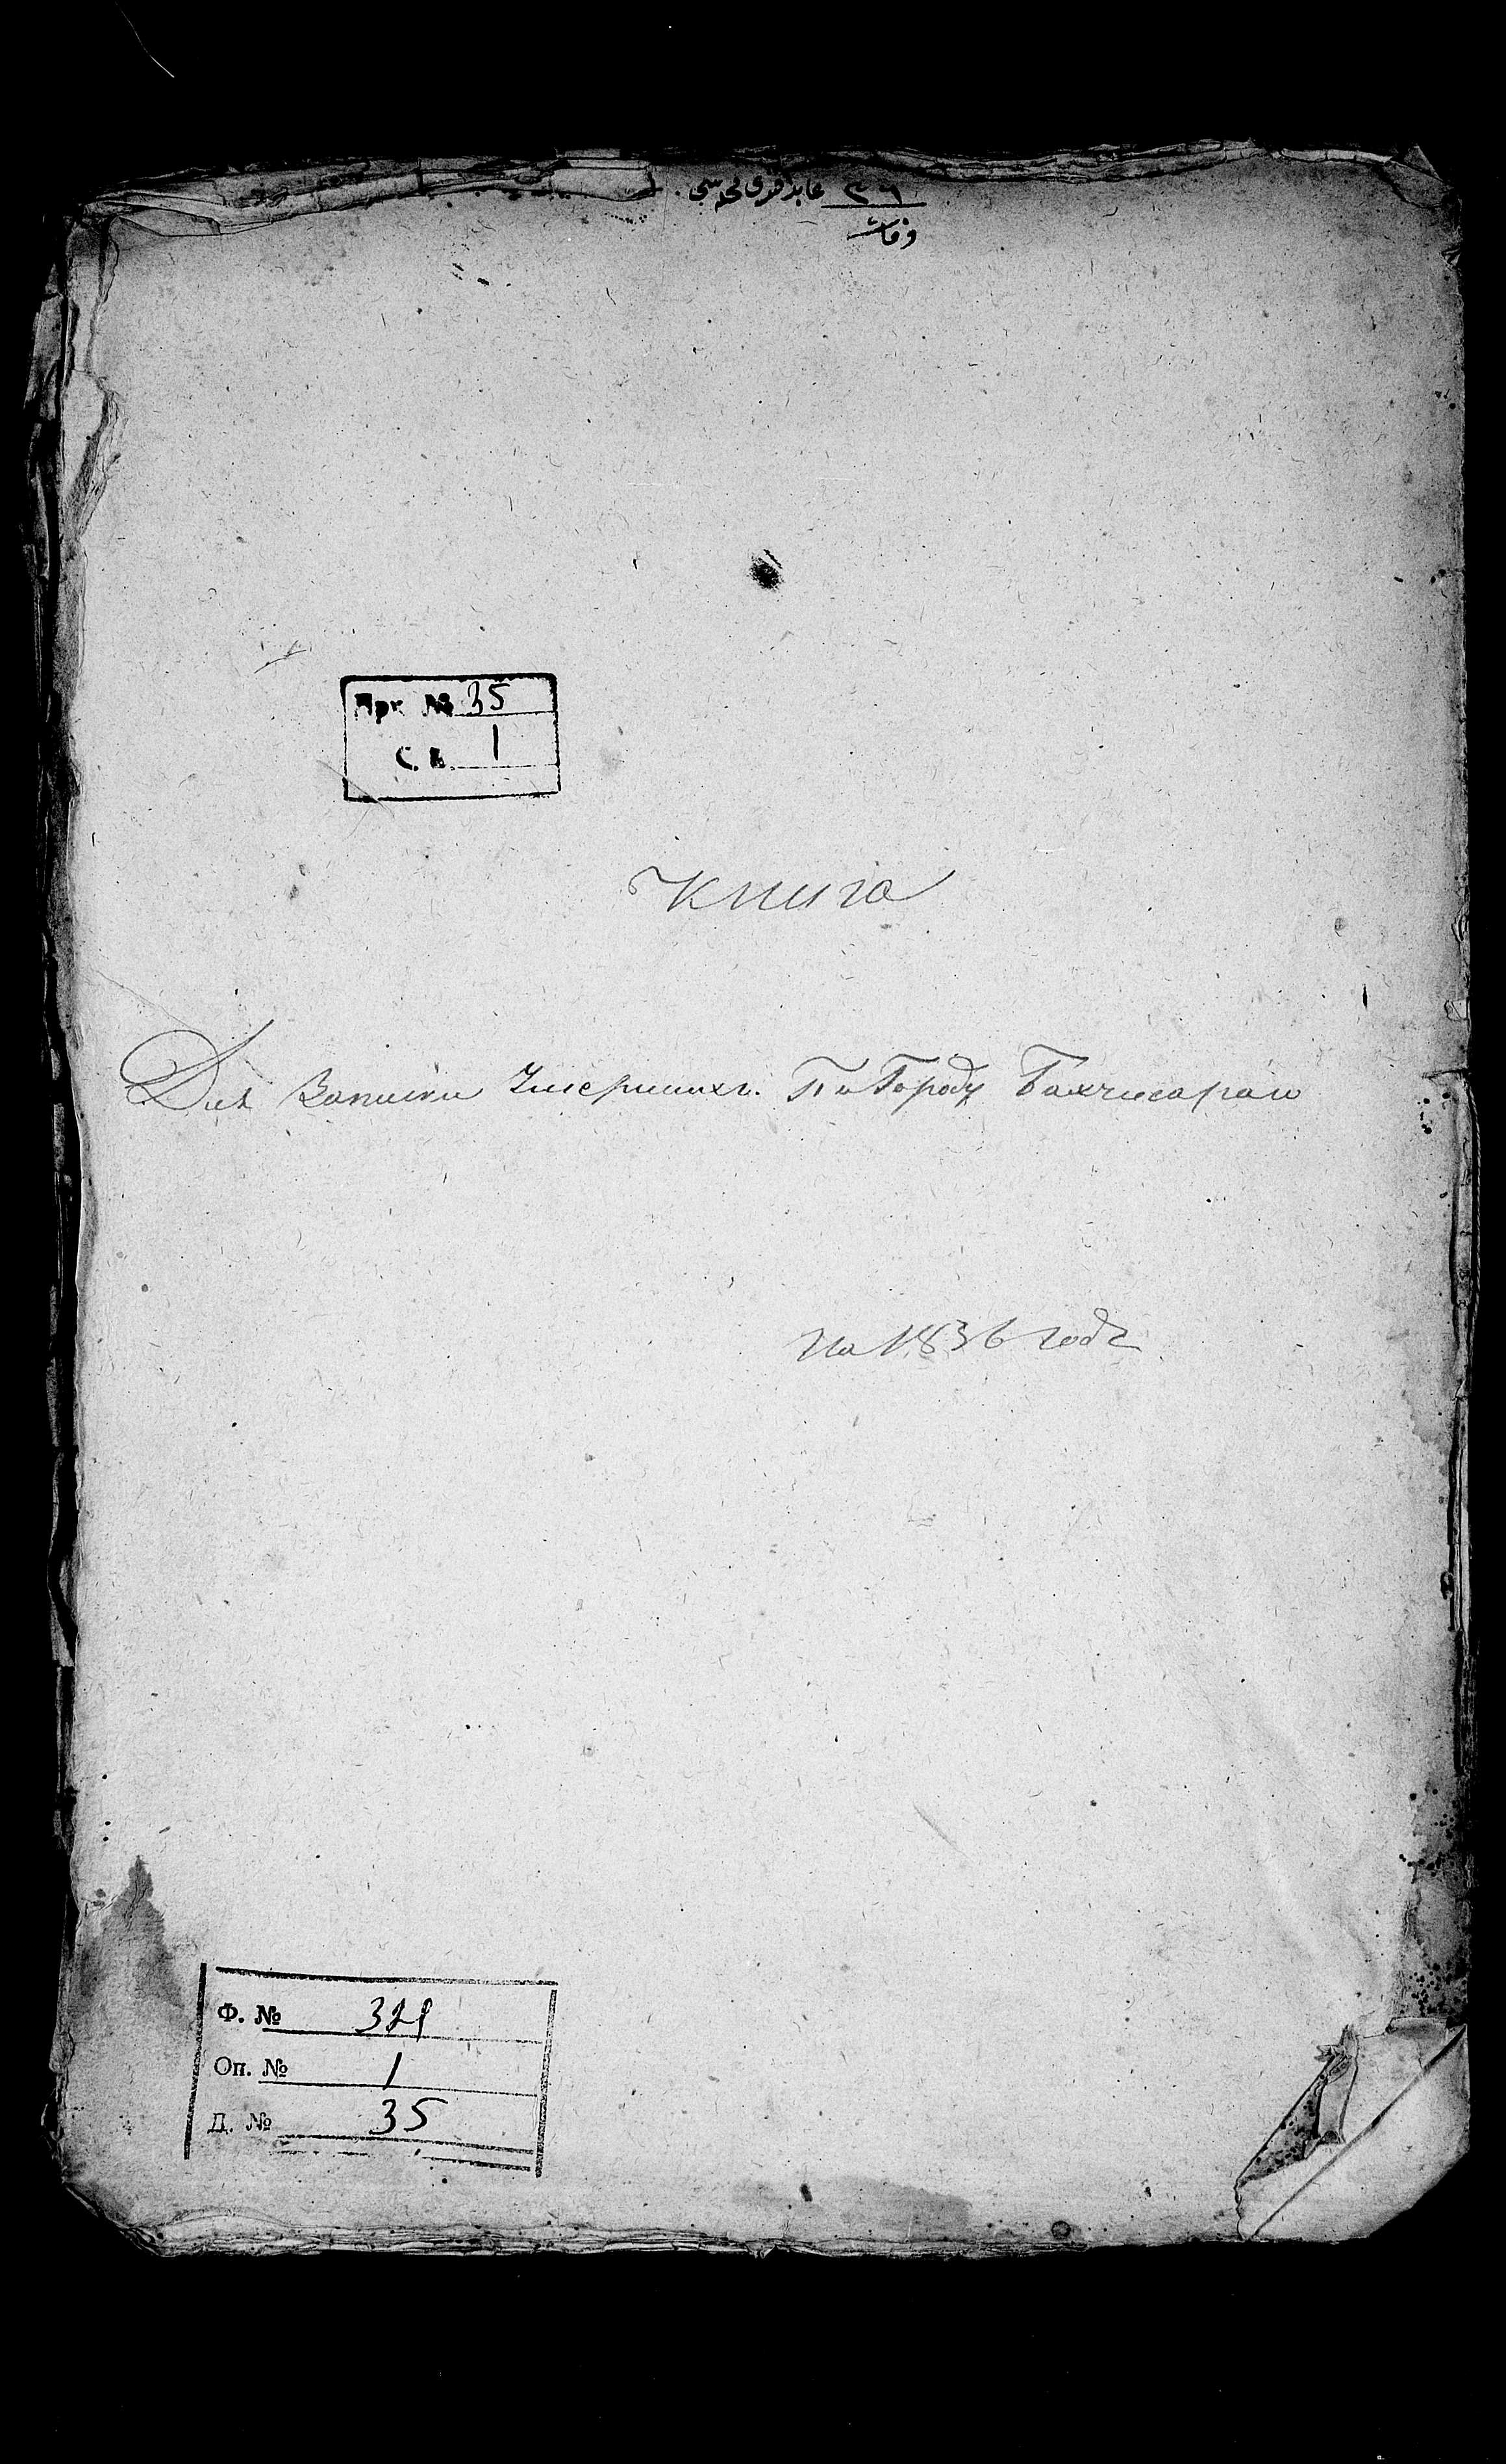 ٣٦
وفات
Арх № 35
С. В. 1
Книга
Для Записки Умершихъ. По Городу Бахчисараю
На 1836 годъ
Ф. № 321
Оп. № 1
Д. № 35